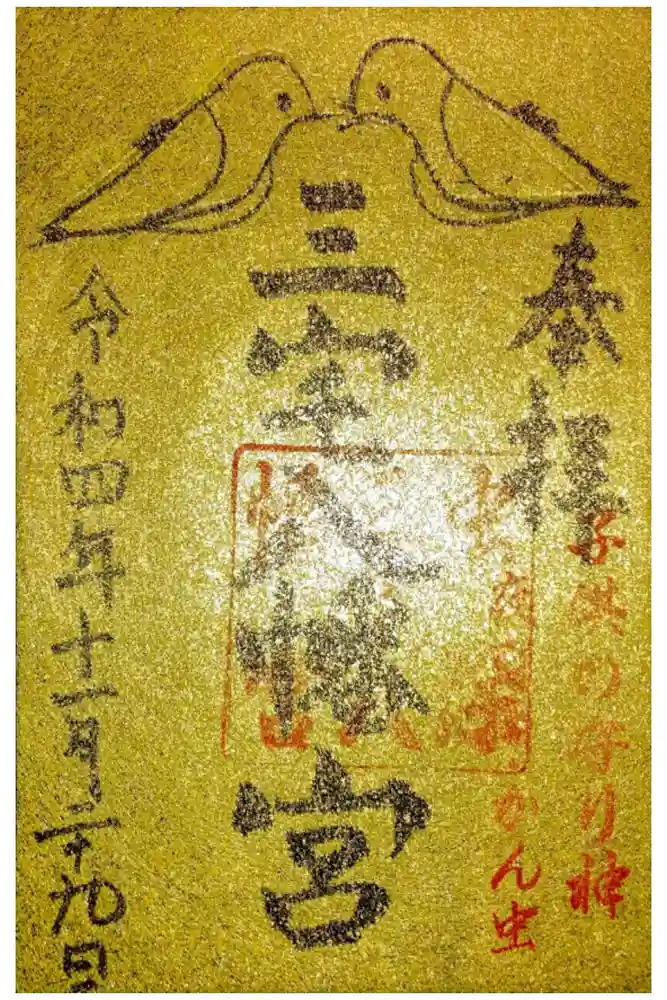 奉拝
子供の守り神
かん虫
三宅八幡宮
令和四年十一月二十九日